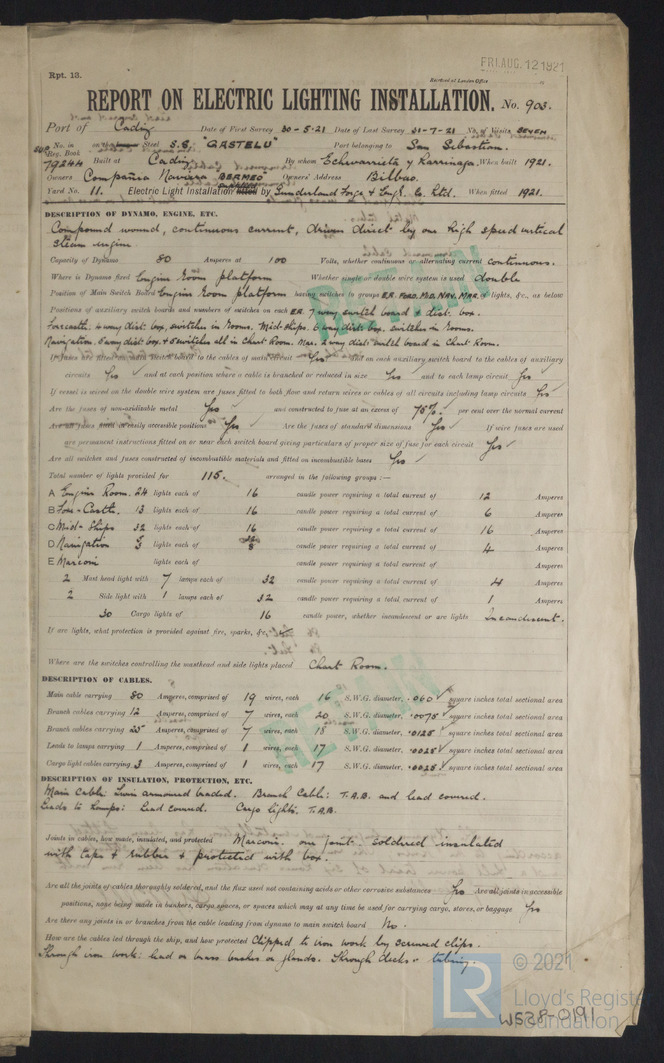 FRI. AUG. 12 1921
Rpt. 13.
Received at London Office
REPORT ON ELECTRIC LIGHTING INSTALLATION. No. 903.
Port of Cadiz Date of First Survey 30-5-21 Date of Last Survey 31-7-21 No. of Visits SEVEN
No. in Reg. Book on the Steel S.S. "GASTELU" Port belonging to San Sebastian.
SUP. 79244 Built at Cadiz By whom Echevarrieta y Larrinaga When built 1921.
Owners Compañia Naviera BERMEO Owners' Address Bilbao.
Yard No. 11. Electric Light Installation fitted by Sunderland Forge & Eng. Co. Ltd. When fitted 1921.
DESCRIPTION OF DYNAMO, ENGINE, ETC.
Compound wound, continuous current, driven direct by one high speed vertical
steam engine.
Capacity of Dynamo 80 Amperes at 100 Volts, whether continuous or alternating current continuous.
Where is Dynamo fixed Engine Room platform Whether single or double wire system is used double
Position of Main Switch Board Engine Room platform having switches to groups ER. Ford. Mid. Nav. Mar. of lights, &c., as below
Positions of auxiliary switch boards and numbers of switches on each ER. 7 way switch board & dist. box.
Forcastle. 4 way dist. box, switches in Rooms. Mid-ships. 6 way dist. box. switches in Rooms.
Navigation. 5 way dist. box. & 5 switches all in Chart Room. Mar. 2 way dist. switch board in Chart Room.
If fuses are fitted on main switch board to the cables of main circuit Yes and on each auxiliary switch board to the cables of auxiliary
circuits Yes and at each position where a cable is branched or reduced in size Yes and to each lamp circuit Yes
If vessel is wired on the double wire system are fuses fitted to both flow and return wires or cables of all circuits including lamp circuits Yes
Are the fuses of non-oxidizable metal Yes and constructed to fuse at an excess of 75%. per cent over the normal current
Are all fuses fitted in easily accessible positions Yes Are the fuses of standard dimensions Yes If wire fuses are used
are permanent instructions fitted on or near each switch board giving particulars of proper size of fuse for each circuit Yes
Are all switches and fuses constructed of incombustible materials and fitted on incombustible bases Yes
Total number of lights provided for 115. arranged in the following groups :—
A Engine Room. 24 lights each of 16 candle power requiring a total current of 12 Amperes
B Fore-Castle. 13 lights each of 16 candle power requiring a total current of 6 Amperes
C Mid-Ships 32 lights each of 16 candle power requiring a total current of 16 Amperes
D Navigation lights each of candle power requiring a total current of 4 Amperes
E Marconi lights each of candle power requiring a total current of Amperes
2 Mast head light with 7 lamps each of 32 candle power requiring a total current of 4 Amperes
2 Side light with 1 lamps each of 32 candle power requiring a total current of 1 Amperes
30 Cargo lights of 16 candle power, whether incandescent or arc lights Incandescent.
If arc lights, what protection is provided against fire, sparks, &c.
Where are the switches controlling the masthead and side lights placed Chart Room.
DESCRIPTION OF CABLES.
Main cable carrying 80 Amperes, comprised of 19 wires, each 16 S.W.G. diameter, .060 square inches total sectional area
Branch cables carrying 12 Amperes, comprised of 7 wires, each 20 S.W.G. diameter, .0075 square inches total sectional area
Branch cables carrying 25 Amperes, comprised of 7 wires, each 18 S.W.G. diameter, .0125 square inches total sectional area
Leads to lamps carrying 1 Amperes, comprised of 1 wires, each 17 S.W.G. diameter, .0025 square inches total sectional area
Cargo light cables carrying 3 Amperes, comprised of 1 wires, each 17 S.W.G. diameter, .0025 square inches total sectional area
DESCRIPTION OF INSULATION, PROTECTION, ETC.
Main Cable: Twin armoured braded. Branch Cable: T.A.B. and lead covered.
Leads to Lamps: Lead covered. Cargo Lights. T.A.B.
Joints in cables, how made, insulated, and protected Marconi. one joint. soldered insulated
with tape & rubber & protected with box.
Are all the joints of cables thoroughly soldered, and the flux used not containing acids or other corrosive substances Yes Are all joints in accessible
positions, none being made in bunkers, cargo spaces, or spaces which may at any time be used for carrying cargo, stores, or baggage Yes
Are there any joints in or branches from the cable leading from dynamo to main switch board No.
How are the cables led through the ship, and how protected Clipped to iron work by screwed clips.
Through iron work: lead or brass bushes or glands. Through decks - tubing.
© 2021
LR
Lloyd's Register
Foundation
W528-0191